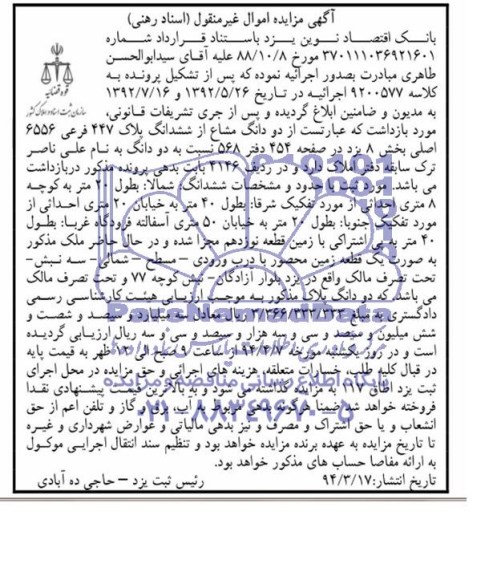 آگهی مزایده اموال غیرمنقول (اسناد رهنی)
بانک اقتصاد نوین یزد باستناد قرارداد شماره
۳۷۰۱۱۱۰۳۶۹۲۱۶۰۱ مورخ ۸۸/۱۰/۸ علیه آقای سیدابوالحسن
طاهری مبادرت بصدور اجرائیه نموده که پس از تشکیل پرونده به
کلاسه ۹۲۰۰۵۷۷ اجرائیه در تاریخ ۱۳۹۲/۵/۲۶ و ۱۳۹۲/۷/۱۶
به مدیون و ضامنین ابلاغ گردیده و پس از جری تشریفات قانونی،
قوه قضائیه
سازمان ثبت اسناد و املاک کشور
مورد بازداشت که عبارتست از دو دانگ مشاع از ششدانگ پلاک ۴۴۷ فرعی ۶۵۵۶
اصلی بخش ۸ یزد در صفحه ۴۵۴ دفتر ۵۶۸ نسبت به دو دانگ به نام علی ناصر
ترک سابقه دفتر املاک دارد و در ردیف ۴۱۴۶ بابت بدهی پرونده مذکور دربازداشت
می باشد. مورد ثبت با حدود و مشخصات ششدانگ: شمالا: بطول ۲۰ متر به کوچه
۸ متری احداثی از مورد تفکیک شرقا: بطول ۴۰ متر به خیابان ۲۰ متری احداثی از
مورد تفکیک جنوبا: بطول ۲۰ متر به خیابان ۵۰ متری آسفالته فرودگاه غربا: بطول
۴۰ متر به پی اشتراکی با زمین قطعه نوزدهم مجزا شده و در حال حاضر ملک مذکور
به صورت یک قطعه زمین محصور با درب ورودی – مسطح – شمالی – سه نبش –
تحت تصرف مالک واقع در یزد بلوار آزادگان – نبش کوچه ۷۷ و تحت تصرف مالک
می باشد که دو دانگ پلاک مذکور به موجب ارزیابی هیئت کارشناسی رسمی
دادگستری به مبلغ ۳/۳۶۶/۳۳۳/۳۳۳ ریال معادل سه میلیارد و سیصد و شصت و
شش میلیون و سیصد و سی و سه هزار و سیصد و سی و سه ریال ارزیابی گردیده
است و در روز یکشنبه مورخه ۹۴/۴/۷ از ساعت ۹ صبح الی ۱۲ ظهر به قیمت پایه
در قبال کلیه طلب، خسارات متعلقه، هزینه های اجرائی و حق مزایده در محل اجرای
ثبت یزد اطاق ۱۱۷ به مزایده گذاشته می شود و به بالاترین قیمت پیشنهادی نقدا
فروخته خواهد شد ضمنا هرگونه بدهی مربوط به آب، برق و گاز و تلفن اعم از حق
انشعاب و یا حق اشتراک و مصرف و نیز بدهی مالیاتی و عوارض شهرداری و غیره
تا تاریخ مزایده به عهده برنده مزایده خواهد بود و تنظیم سند انتقال اجرایی موکول
به ارائه مفاصا حساب های مذکور خواهد بود.
تاریخ انتشار: ۹۴/۳/۱۷ رئیس ثبت یزد – حاجی ده آبادی
پایگاه اطلاع رسانی مناقصه و مزایده
۰۲۱-۸۸۳۴۹۶۷۰-۵